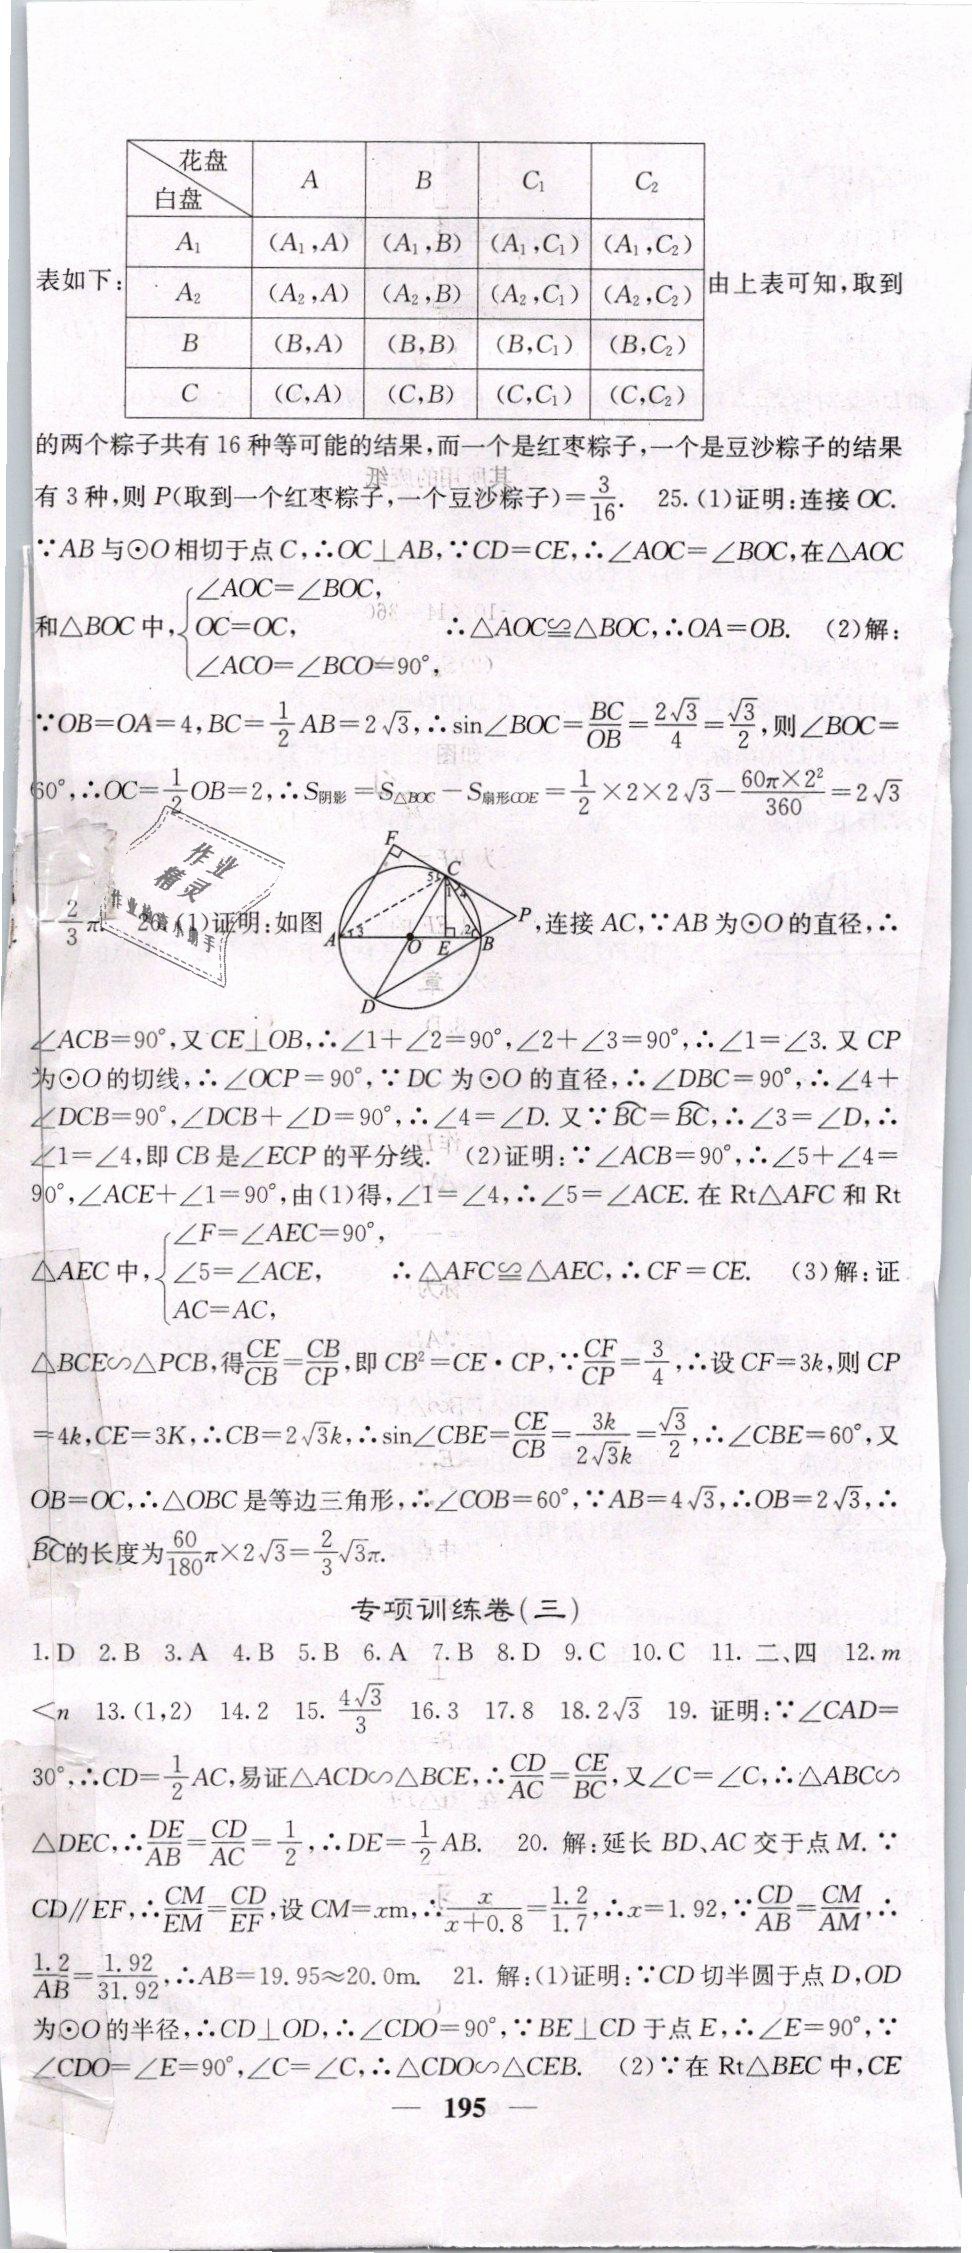 花盘 A B C₁ C₂
白盘
A₁ (A₁,A) (A₁,B) (A₁,C₁) (A₁,C₂)
表如下: A₂ (A₂,A) (A₂,B) (A₂,C₁) (A₂,C₂) 由上表可知,取到
B (B,A) (B,B) (B,C₁) (B,C₂)
C (C,A) (C,B) (C,C₁) (C,C₂)
的两个粽子共有 16 种等可能的结果,而一个是红枣粽子,一个是豆沙粽子的结果
有 3 种,则 P(取到一个红枣粽子,一个豆沙粽子)=3/16. 25. (1)证明:连接 OC.
∵AB 与⊙O 相切于点 C,∴OC⊥AB,∵CD=CE,∴∠AOC=∠BOC,在△AOC
∠AOC=∠BOC,
和△BOC 中,{OC=OC, ∴△AOC≌△BOC,∴OA=OB. (2)解:
∠ACO=∠BCO=90°,
∵OB=OA=4,BC=1/2 AB=2√3,∴sin∠BOC=BC/OB=2√3/4=√3/2,则∠BOC=
60°,∴OC=1/2 OB=2,∴S阴影=S△BOC-S扇形COE=1/2×2×2√3-60π×2²/360=2√3
-2/3 π. 26. (1)证明:如图 F C 5 1 4 P A 3 O E 2 B D ,连接 AC,∵AB 为⊙O 的直径,∴
作业精灵
∠ACB=90°,又 CE⊥OB,∴∠1+∠2=90°,∠2+∠3=90°,∴∠1=∠3. 又 CP
为⊙O 的切线,∴∠OCP=90°,∵DC 为⊙O 的直径,∴∠DBC=90°,∴∠4+
∠DCB=90°,∠DCB+∠D=90°,∴∠4=∠D. 又∵B͡C=B͡C,∴∠3=∠D,∴
∠1=∠4,即 CB 是∠ECP 的平分线. (2)证明:∵∠ACB=90°,∴∠5+∠4=
90°,∠ACE+∠1=90°,由(1)得,∠1=∠4,∴∠5=∠ACE. 在 Rt△AFC 和 Rt
∠F=∠AEC=90°,
△AEC 中,{∠5=∠ACE, ∴△AFC≌△AEC,∴CF=CE. (3)解:证
AC=AC,
△BCE∽△PCB,得CE/CB=CB/CP,即 CB²=CE·CP,∵CF/CP=3/4,∴设 CF=3k,则 CP
=4k,CE=3K,∴CB=2√3k,∴sin∠CBE=CE/CB=3k/2√3k=√3/2,∴∠CBE=60°,又
OB=OC,∴△OBC 是等边三角形,∴∠COB=60°,∵AB=4√3,∴OB=2√3,∴
B͡C的长度为60/180 π×2√3=2/3 √3π.
专项训练卷(三)
1. D 2. B 3. A 4. B 5. B 6. A 7. B 8. D 9. C 10. C 11. 二、四 12. m
<n 13. (1,2) 14. 2 15. 4√3/3 16. 3 17. 8 18. 2√3 19. 证明:∵∠CAD=
30°,∴CD=1/2 AC,易证△ACD∽△BCE,∴CD/AC=CE/BC,又∠C=∠C,∴△ABC∽
△DEC,∴DE/AB=CD/AC=1/2,∴DE=1/2 AB. 20. 解:延长 BD、AC 交于点 M. ∵
CD∥EF,∴CM/EM=CD/EF,设 CM=xm,∴x/x+0.8=1.2/1.7,∴x=1.92,∵CD/AB=CM/AM,∴
1.2/AB=1.92/31.92,∴AB=19.95≈20.0m. 21. 解:(1)证明:∵CD 切半圆于点 D,OD
为⊙O 的半径,∴CD⊥OD,∴∠CDO=90°,∵BE⊥CD 于点 E,∴∠E=90°,∵
∠CDO=∠E=90°,∠C=∠C,∴△CDO∽△CEB. (2)∵在 Rt△BEC 中,CE
— 195 —